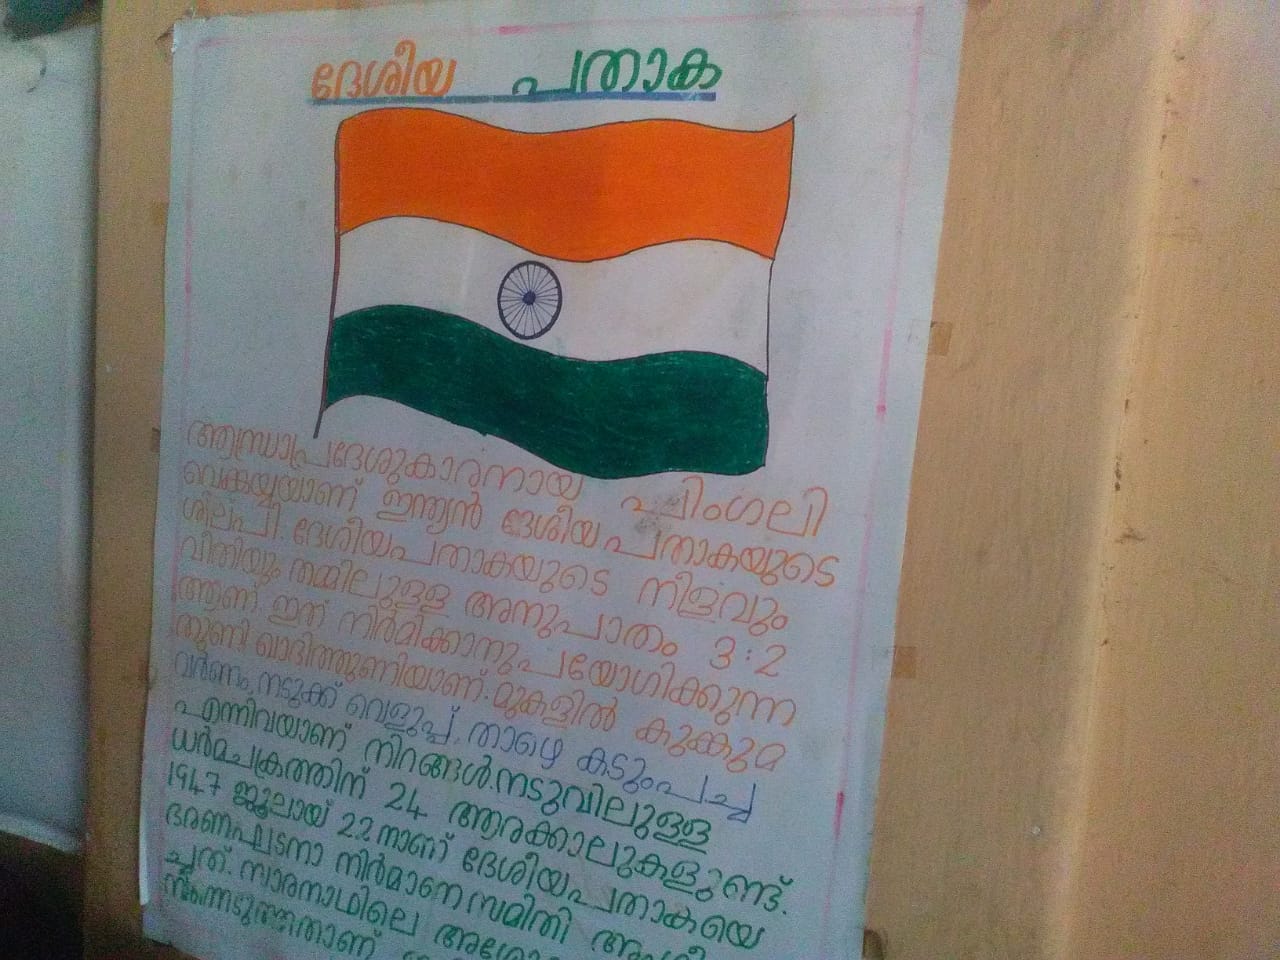 ദേശീയ പതാക
ആന്ധ്രാപ്രദേശുകാരനായ പിംഗലി
വെങ്കയ്യയാണ് ഇന്ത്യൻ ദേശീയ പതാകയുടെ
ശില്പി. ദേശീയപതാകയുടെ നീളവും
വീതിയും തമ്മിലുള്ള അനുപാതം 3:2
ആണ്. ഇത് നിർമിക്കാനുപയോഗിക്കുന്ന
തുണി ഖാദിത്തുണിയാണ്. മുകളിൽ കുങ്കുമ
വർണം, നടുക്ക് വെളുപ്പ്, താഴെ കടുംപച്ച
എന്നിവയാണ് നിറങ്ങൾ. നടുവിലുള്ള
ധർമചക്രത്തിന് 24 ആരക്കാലുകളുണ്ട്.
1947 ജൂലായ് 22 നാണ് ദേശീയപതാകയെ
ഭരണഘടനാ നിർമാണസമിതി
ച്ചത്. സാരനാഥിലെ